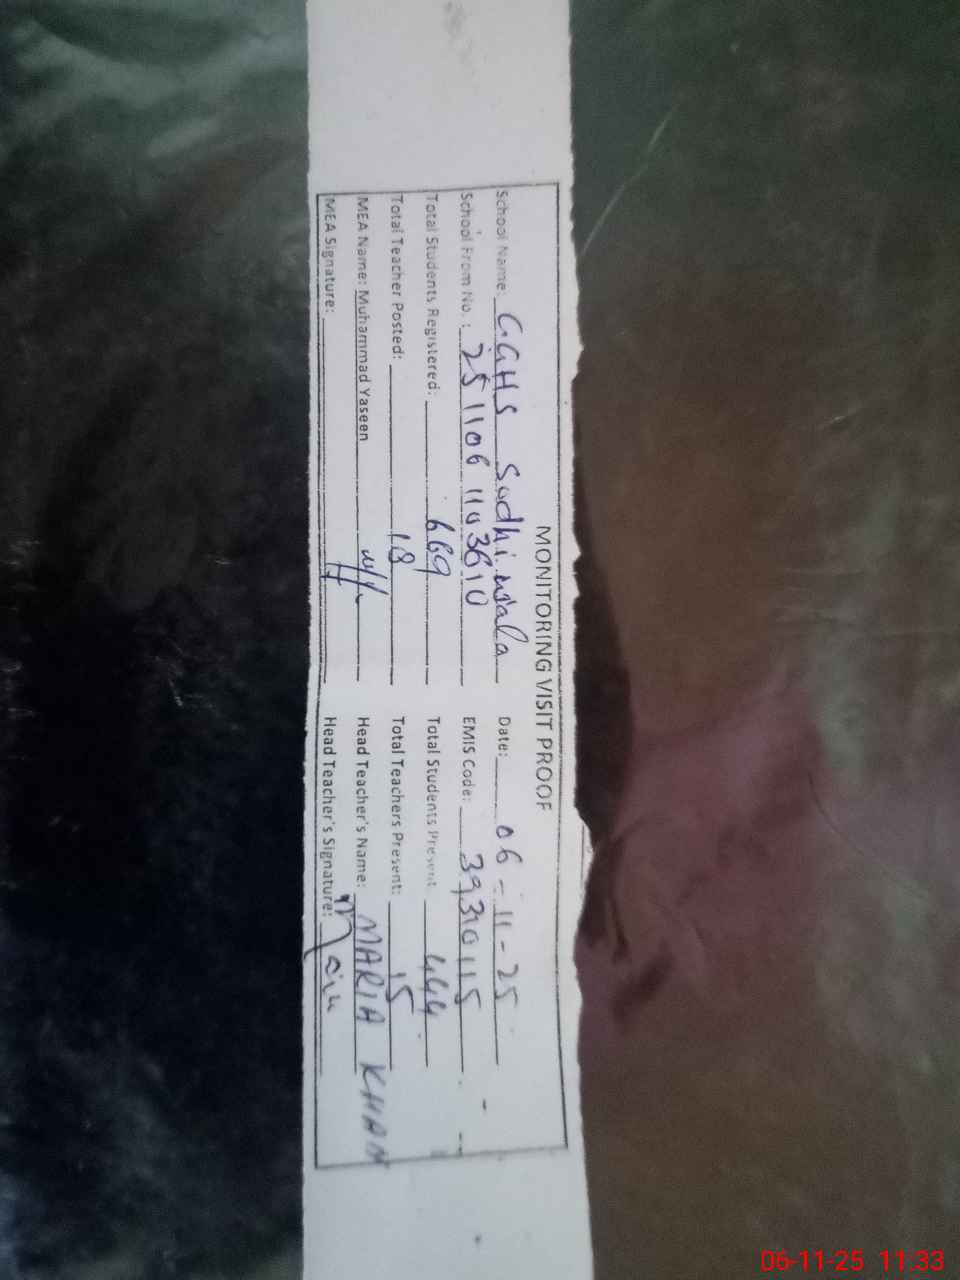 MONITORING VISIT PROOF
School Name: GGHS Sadhi wala Date: 06-11-25
School From No.: 251106 1103610 EMIS Code: 39310115
Total Students Registered: 669 Total Students Present 444
Total Teacher Posted: 18 Total Teachers Present: 15
MEA Name: Muhammad Yaseen Head Teacher's Name: MARIA KHAN
MEA Signature: Head Teacher's Signature:
06-11-25 11:33